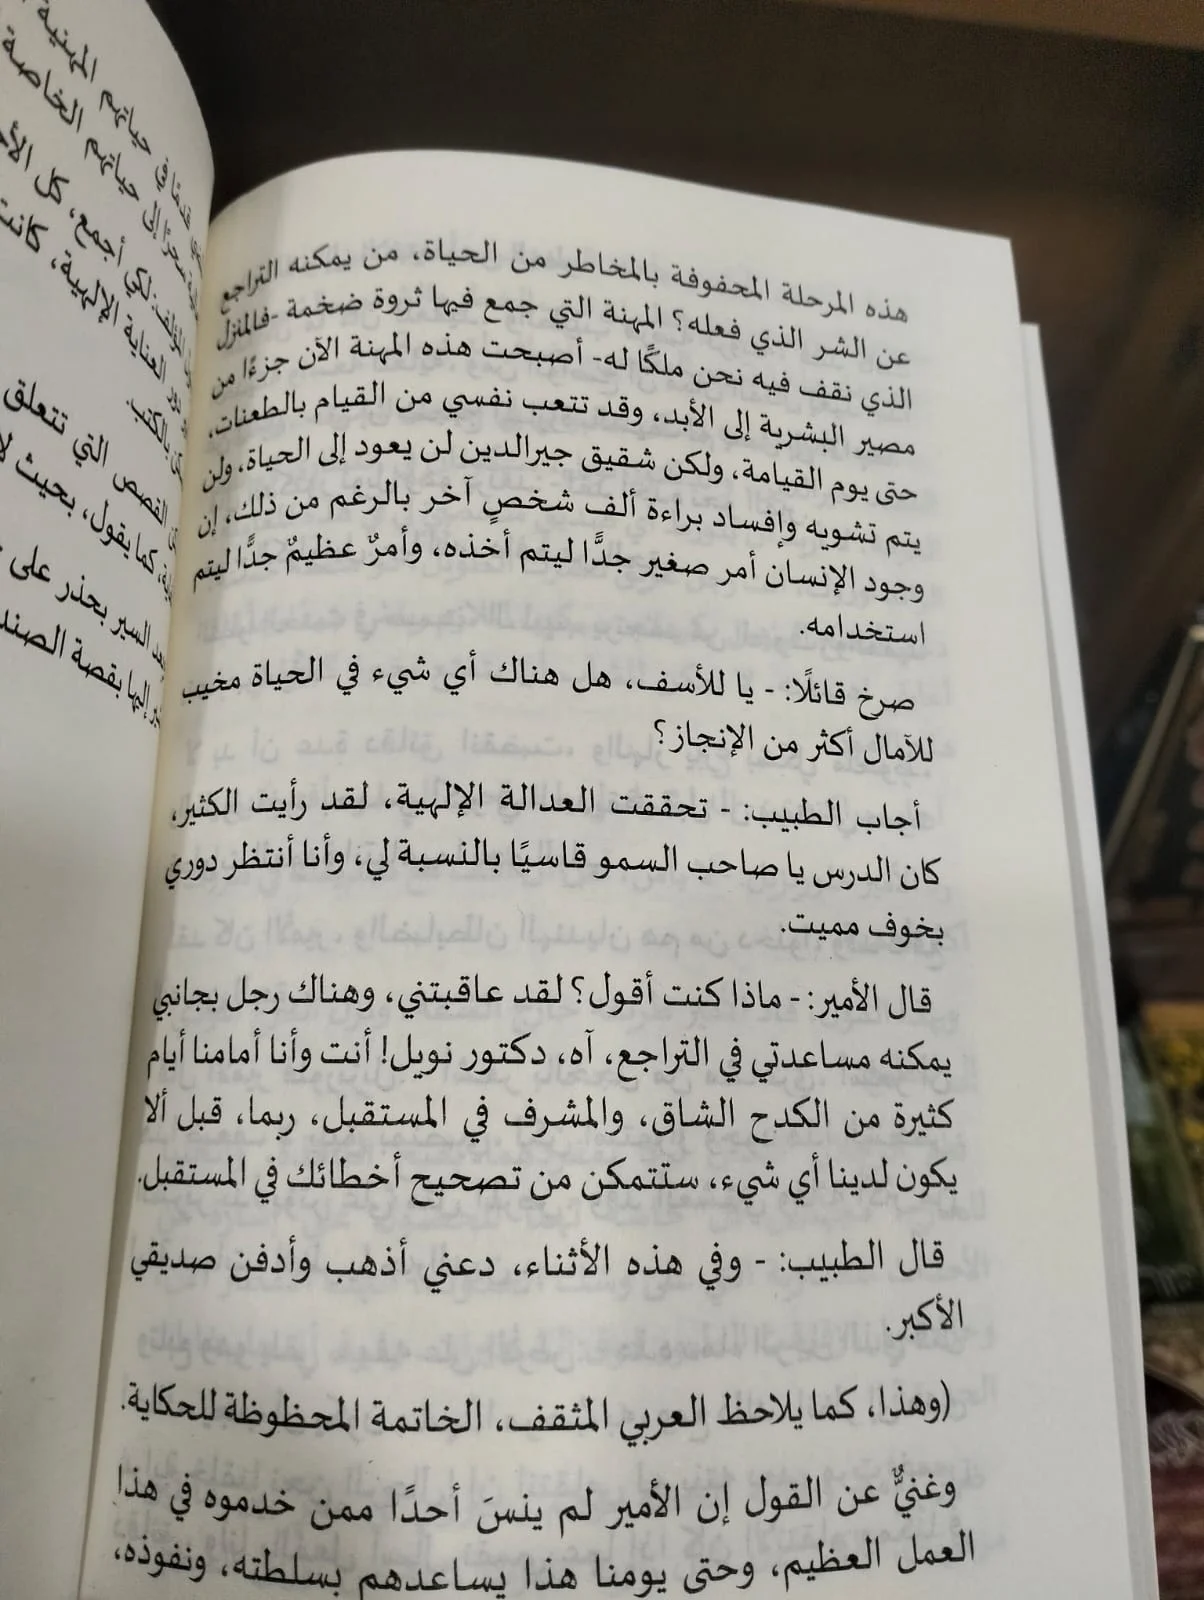 هذه المرحلة المحفوفة بالمخاطر من الحياة، من يمكنه التراجع
عن الشر الذي فعله؟ المهنة التي جمع فيها ثروة ضخمة -فالمنزل
الذي نقف فيه نحن ملكًا له- أصبحت هذه المهنة الآن جزءًا من
مصير البشرية إلى الأبد، وقد تتعب نفسي من القيام بالطعنات،
حتى يوم القيامة، ولكن شقيق جيرالدين لن يعود إلى الحياة، ولن
يتم تشويه وإفساد براءة ألف شخصٍ آخر بالرغم من ذلك، إن
وجود الإنسان أمر صغير جدًّا ليتم أخذه، وأمرٌ عظيمٌ جدًّا ليتم
استخدامه.
صرخ قائلًا: - يا للأسف، هل هناك أي شيء في الحياة مخيب
للآمال أكثر من الإنجاز؟
أجاب الطبيب: - تحققت العدالة الإلهية، لقد رأيت الكثير،
كان الدرس يا صاحب السمو قاسيًا بالنسبة لي، وأنا أنتظر دوري
بخوف مميت.
قال الأمير: - ماذا كنت أقول؟ لقد عاقبتني، وهناك رجل بجانبي
يمكنه مساعدتي في التراجع، آه، دكتور نويل! أنت وأنا أمامنا أيام
كثيرة من الكدح الشاق، والمشرف في المستقبل، ربما، قبل ألا
يكون لدينا أي شيء، ستتمكن من تصحيح أخطائك في المستقبل.
قال الطبيب: - وفي هذه الأثناء، دعني أذهب وأدفن صديقي
الأكبر.
(وهذا، كما يلاحظ العربي المثقف، الخاتمة المحظوظة للحكاية.
وغنيٌّ عن القول إن الأمير لم ينسَ أحدًا ممن خدموه في هذا
العمل العظيم، وحتى يومنا هذا يساعدهم بسلطته، ونفوذه،
في حياتهم المهنية
إلى حياتهم الخاصة
أجمع، كل
العناية الإلهية، كانت
بالكتب.
القصص التي تتعلق
كما يقول، بحيث
السير بحذر على
إليها بقصة